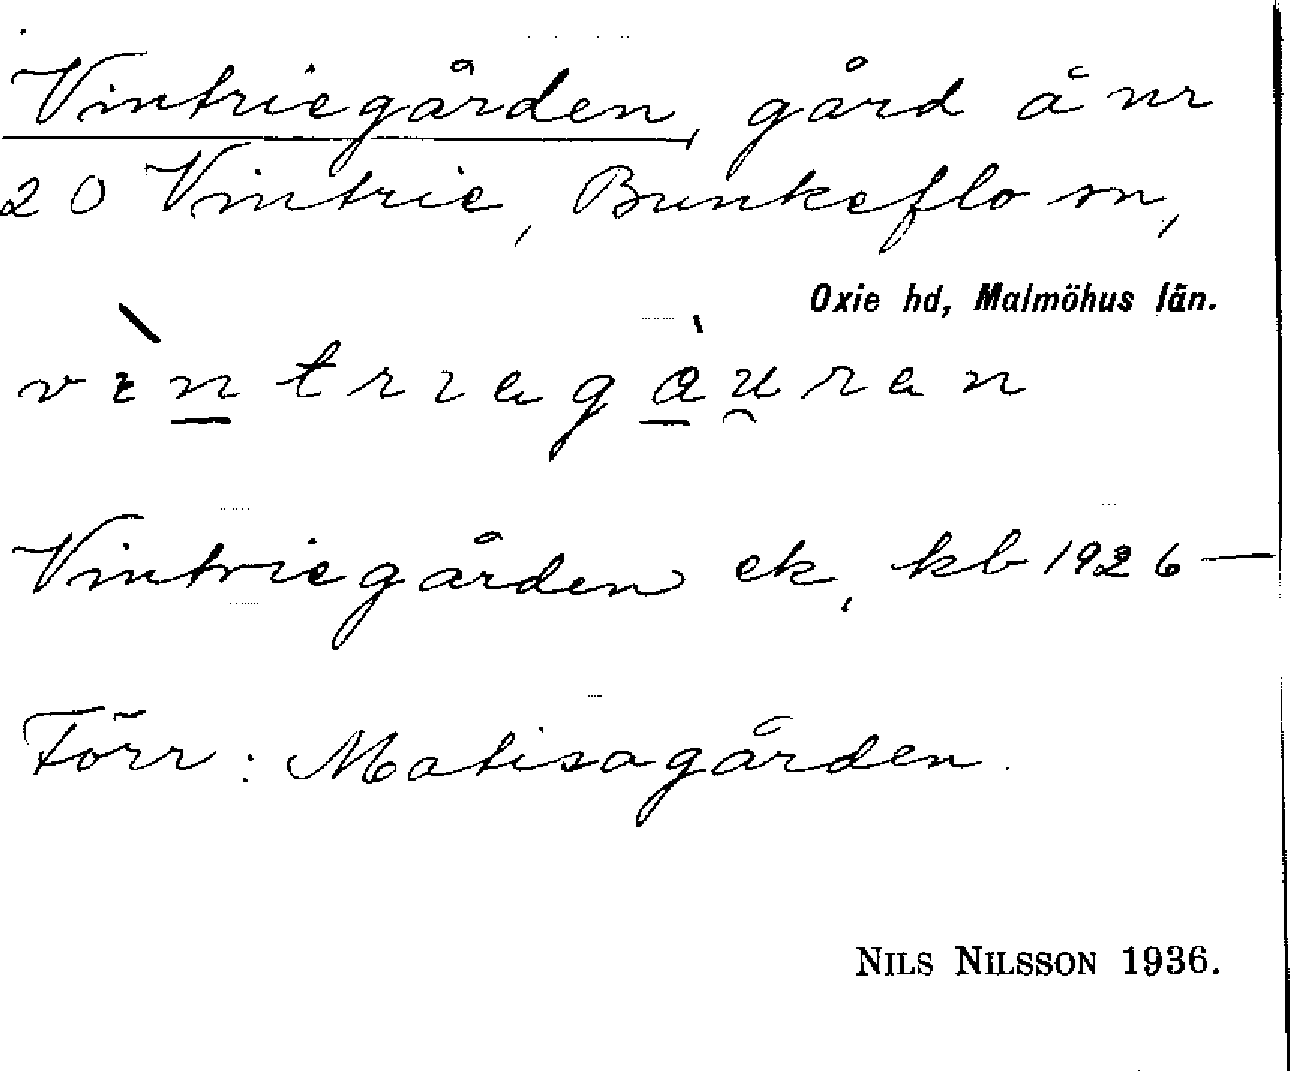 Vintriegården, gård å nr
20 Vintrie, Bunkeflo sn,
Oxie hd, Malmöhus län.
vìn̲trıagà̲u̯ran
Vintriegården ek, kb 1926—
Förr: Matisagården.
NILS NILSSON 1936.